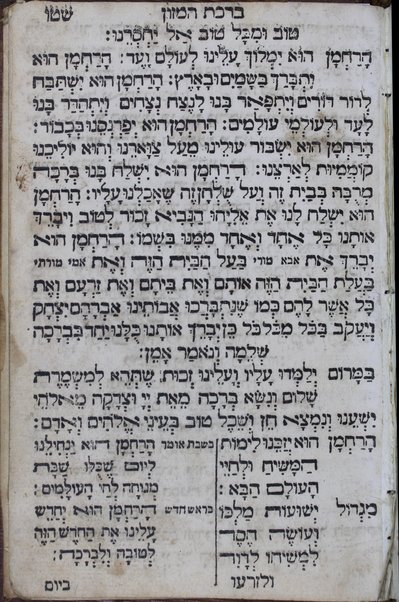 ברכת המזון
טוב ומכל טוב אל יחסרנו:
הרחמן הוא ימלוך עלינו לעולם ועד: הרחמן הוא
יתברך בשמים ובארץ: הרחמן הוא ישתבח
לדור דורים ויתפאר בנו לנצח נצחים ויתהדר בנו
לעד ולעולמי עולמים: הרחמן הוא יפרנסנו בכבוד:
הרחמן הוא ישבור עולינו מעל צוארנו והוא יוליכנו
קוממיות לארצנו: הרחמן הוא ישלח בנו ברכה
מרובה בבית זה ועל שלחן זה שאכלנו עליו: הרחמן
הוא ישלח לנו את אליהו הנביא זכור לטוב ויברך
אותנו כל אחד ואחד ממנו בשמו: הרחמן הוא
יברך את אבא מורי בעל הבית הזה ואת אמי מורתי
בעלת הבית הזה אותם ואת ביתם ואת זרעם ואת
כל אשר להם כמו שנתברכו אבותינו אברהם יצחק
ויעקב בכל מכל כל כן יברך אותנו כלנו יחד בברכה
שלמה ונאמר אמן:
במרום ילמדו עליו ועלינו זכות שתהא למשמרת
שלום ונשא ברכה מאת יי וצדקה מאלהי
ישענו ונמצא חן ושכל טוב בעיני אלהים ואדם:
הרחמן הוא יזכנו לימות
המשיח ולחיי
העולם הבא:
מגדול ישועות מלכו
ועושה חסד
למשיחו לדוד
ולזרעו
בשבת אומר הרחמן הוא ינחילנו
ליום שכלו שבת
מנוחה לחי העולמים:
בראש חדש הרחמן הוא יחדש
עלינו את החדש הזה
לטובה ולברכה:
ביום